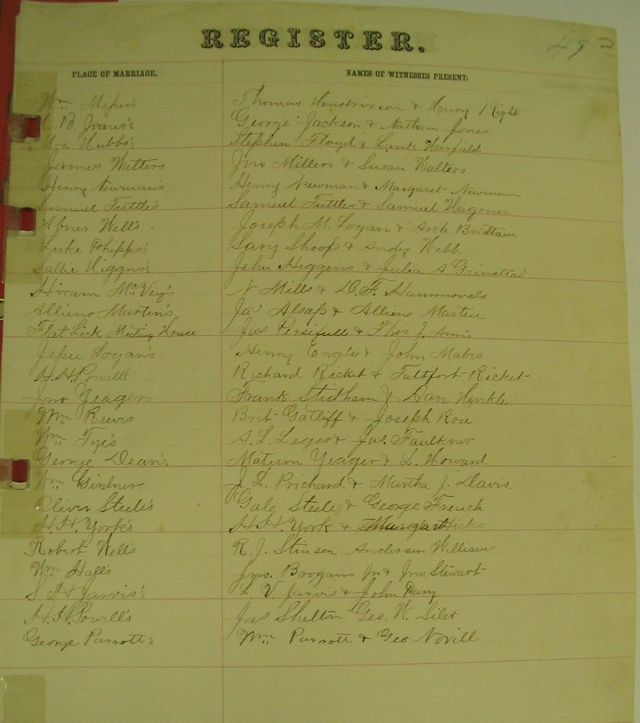 REGISTER.
PLACE OF MARRIAGE. NAMES OF WITNESSES PRESENT.
Wm Thomas Hendrixson & Henry Right
C. B. George Jackson & Nathan Jones
Mrs Hubbs Stephen Floyd & Warfield
James Walters Jno Millers & Susan Walters
Henry Newman's Henry Newman & Margaret Newman
Samuel Tuttle's Samuel Tuttle & Samuel Wagoner
Abner Well's Joseph M. Logan & Brittain
Luke Phipps' Sary Shoop & Andy Webb
Sallie Higgins's John Higgins & Julia A Grinstead
Hiram McVey's N Mills & D. F. Hammonds
Allieno Martin's Jas Alsap & Allieno Martin
Flat Lick Meeting House Jas Persifull & Thos J.
Logan's Henry Engle & John
H. H. Powell's Richard Ricket & Ricket
Jno Yeager Frank Stidham & Dan Hinkle
Wm Reuis Brit Gatliff & Joseph Rose
Wm Tye's A. L. Leger & Jas. Faulkner
George Dean's Matison Yeager & L. Howard
Wm Girdner J. L. Prichard & Martha J. Davis
Oliver Steele's Gale Steele & George French
H. H. York's H. H. York & Hicks
Robert Wells R. J. Stinson Anderson William
Wm Hall's Jno. Brogans & Jno Stewart
Jarvis's L. V. Jarvis & John
H. H. Powell's Jas Shelton Geo. W. Siler
George Parrott's Wm Parrott & Geo Novill